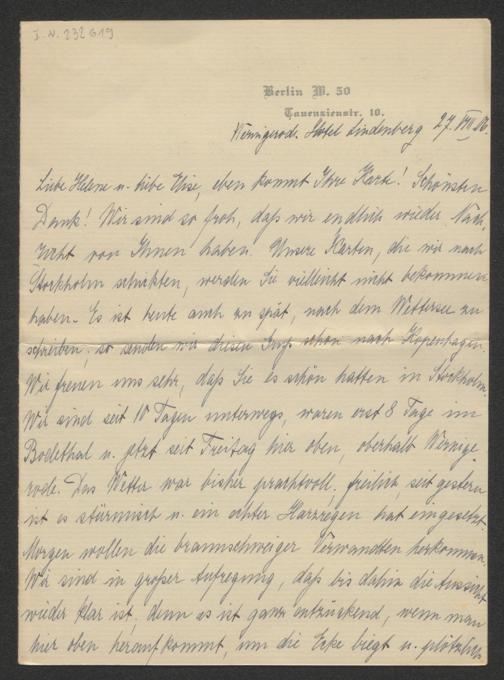 I. N. 232619
Berlin W. 50
Tauenzienstr. 10.
Wernigerod. Hotel Lindenberg 27. VIII 06.
Liebe Helene u. liebe Elise, eben kommt Ihre Karte! Schönsten
Dank! Wir sind so froh, daß wir endlich wieder Nach,
richt von Ihnen haben. Unsere Karten, die wir nach
Stockholm schickten, werden Sie vielleicht nicht bekommen
haben. Es ist heute auch zu spät, nach dem Wettersee zu
schreiben; so senden wir diesen Gruß schon nach Kopenhagen.
Wir freuen uns sehr, daß Sie es schön hatten in Stockholm.
Wir sind seit 10 Tagen unterwegs, waren erst 8 Tage im
Bodethal u. jetzt seit Freitag hier oben, oberhalb Wernige
rode. Das Wetter war bisher prachtvoll, freilich, seit gestern
ist es stürmisch u. ein echter Harzregen hat eingesetzt.
Morgen wollen die braunschweiger Verwandten herkommen.
Wir sind in großer Aufregung, daß bis dahin die Aussicht
wieder klar ist, denn es ist ganz entzückend, wenn man
hier oben heraufkommt, um die Ecke biegt u. plötzlich